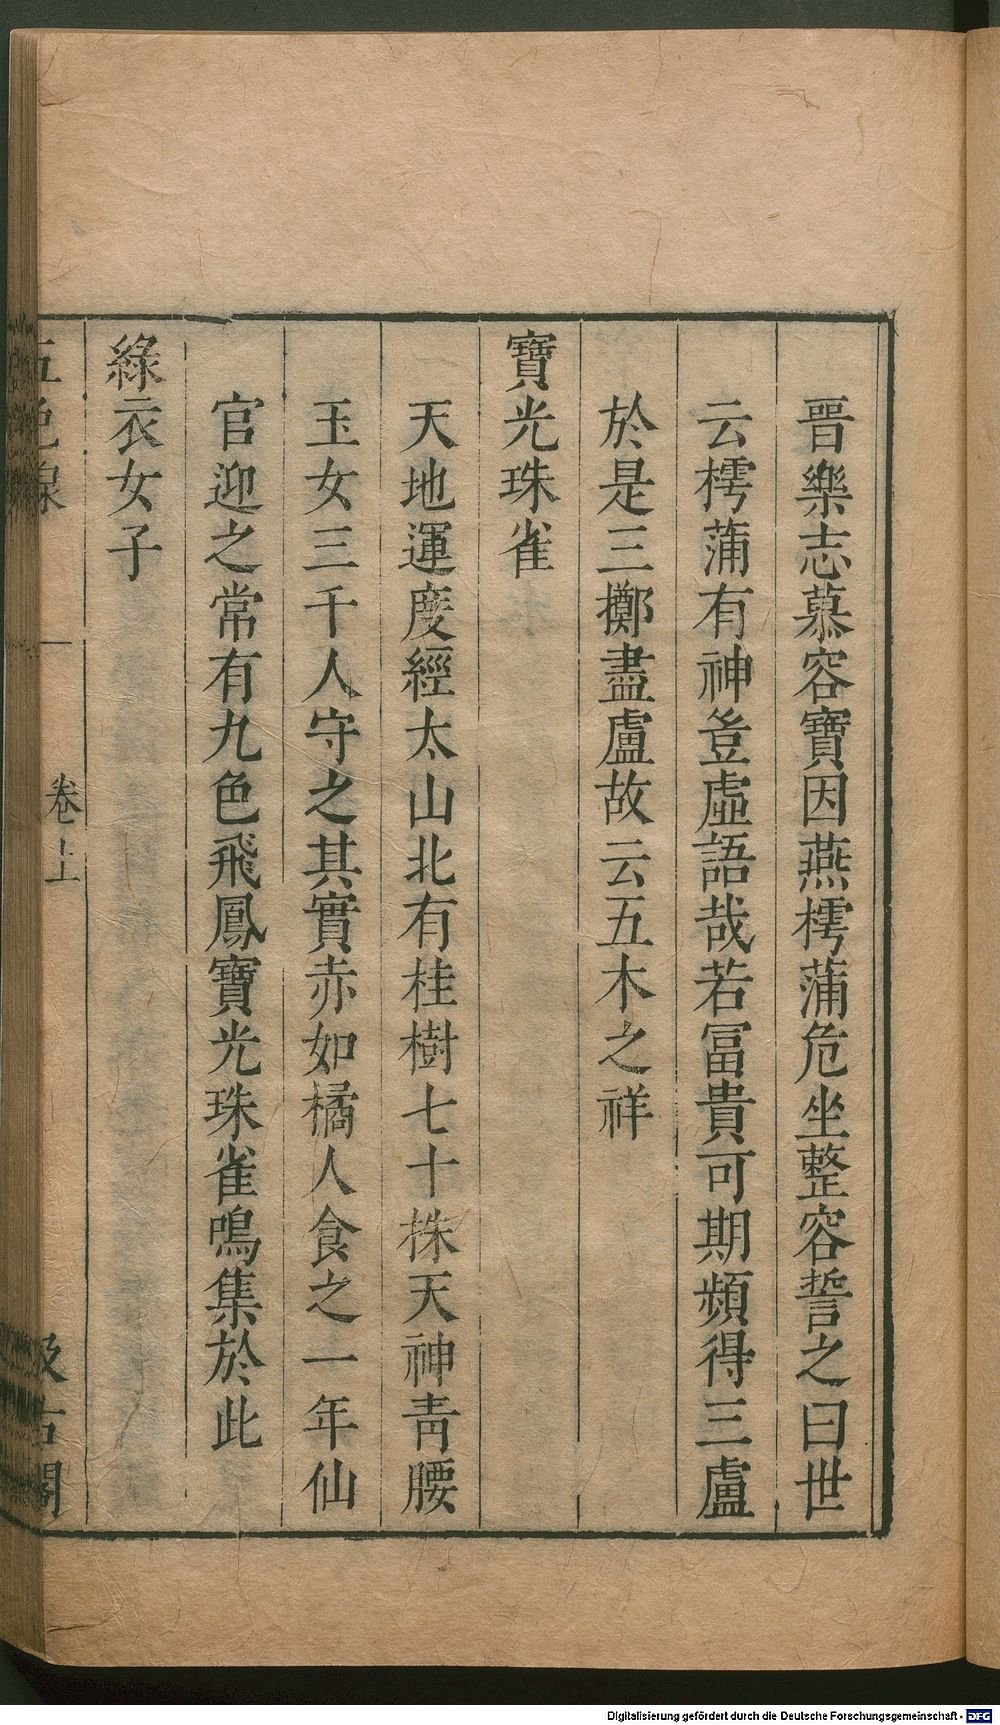 晉樂志慕容寶因燕樗蒲危坐整容誓之曰世
云樗蒲有神豈虛語哉若冨貴可期頻得三盧
於是三擲盡盧故云五木之祥
寶光珠雀
天地運度經太山北有桂樹七十株天神靑腰
玉女三千人守之其實赤如橘人食之一年仙
官迎之常有九色飛鳳寶光珠雀鳴集於此
綠衣女子
五色線
卷上
汲古閣
Digitalisierung gefördert durch die Deutsche Forschungsgemeinschaft - DFG